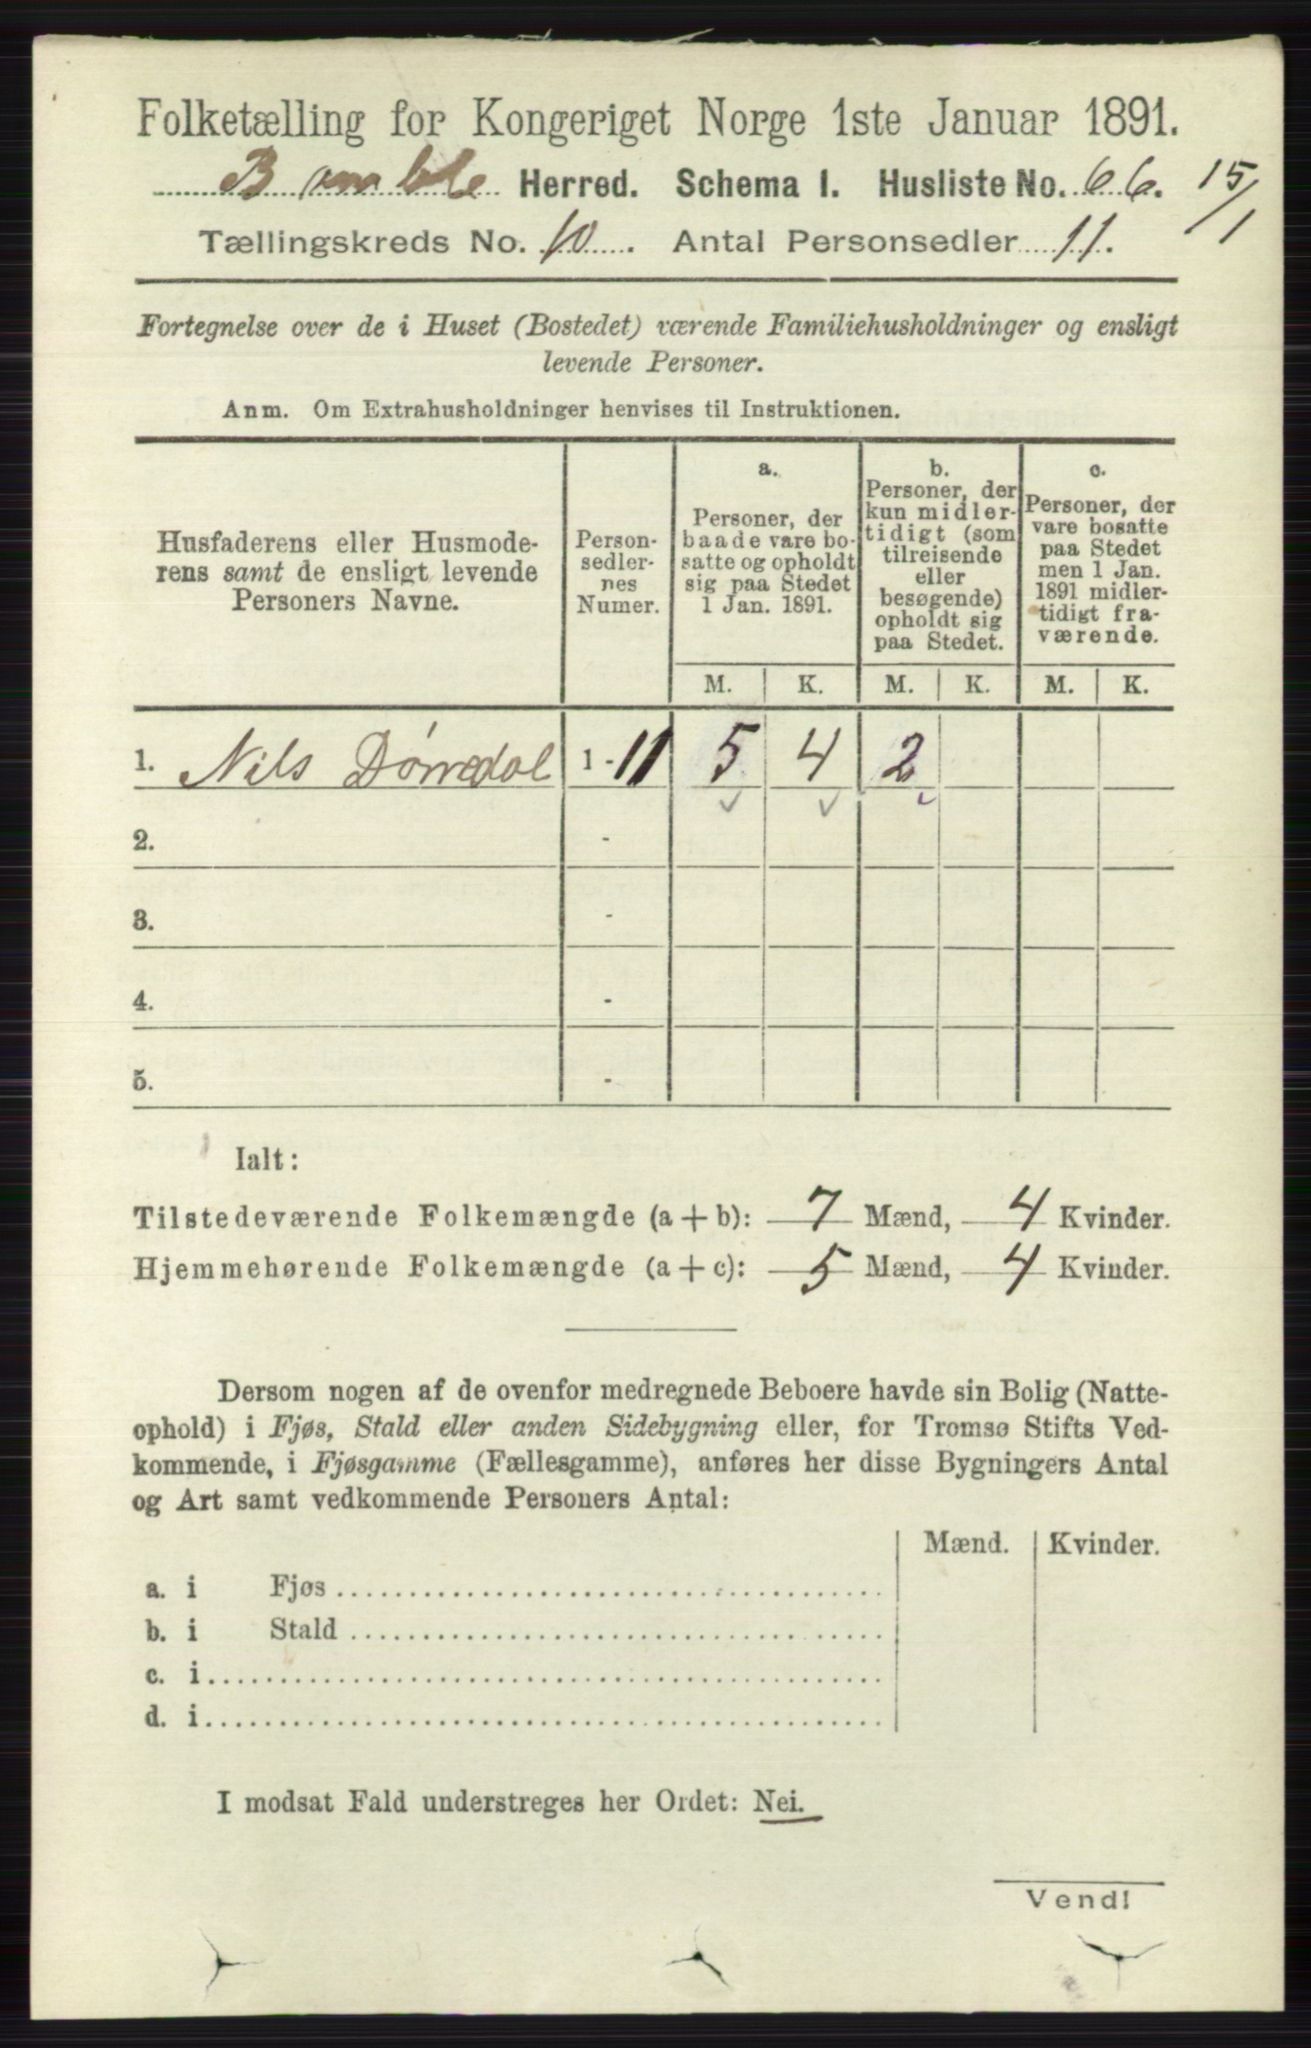 Folketælling for Kongeriget Norge 1ste Januar 1891.
Bamble Herred. Schema I. Husliste No. 66. 15/1
Tællingskreds No. 10. Antal Personsedler 11.
Fortegnelse over de i Huset (Bostedet) værende Familiehusholdninger og ensligt
levende Personer.
Anm. Om Extrahusholdninger henvises til Instruktionen.
Husfaderens eller Husmode-
rens samt de ensligt levende
Personers Navne.
Person-
sedler-
nes
Numer.
a.
Personer, der
baade vare bo-
satte og opholdt
sig paa Stedet
1 Jan. 1891.
b.
Personer, der
kun midler-
tidigt (som
tilreisende
eller
besøgende)
opholdt sig
paa Stedet.
c.
Personer, der
vare bosatte
paa Stedet
men 1 Jan.
1891 midler-
tidigt fra-
værende.
M. K. M. K. M. K.
1. Nils Dørredal 1-11 5 4 2
2. -
3. -
4. -
5. -
Ialt:
Tilstedeværende Folkemængde (a+b): 7 Mænd, 4 Kvinder.
Hjemmehørende Folkemængde (a+c): 5 Mænd, 4 Kvinder.
Dersom nogen af de ovenfor medregnede Beboere havde sin Bolig (Natte-
ophold) i Fjøs, Stald eller anden Sidebygning eller, for Tromsø Stifts Ved-
kommende, i Fjøsgamme (Fællesgamme), anføres her disse Bygningers Antal
og Art samt vedkommende Personers Antal:
Mænd. Kvinder.
a. i Fjøs
b. i Stald
c. i
d. i
I modsat Fald understreges her Ordet: Nei.
Vend!